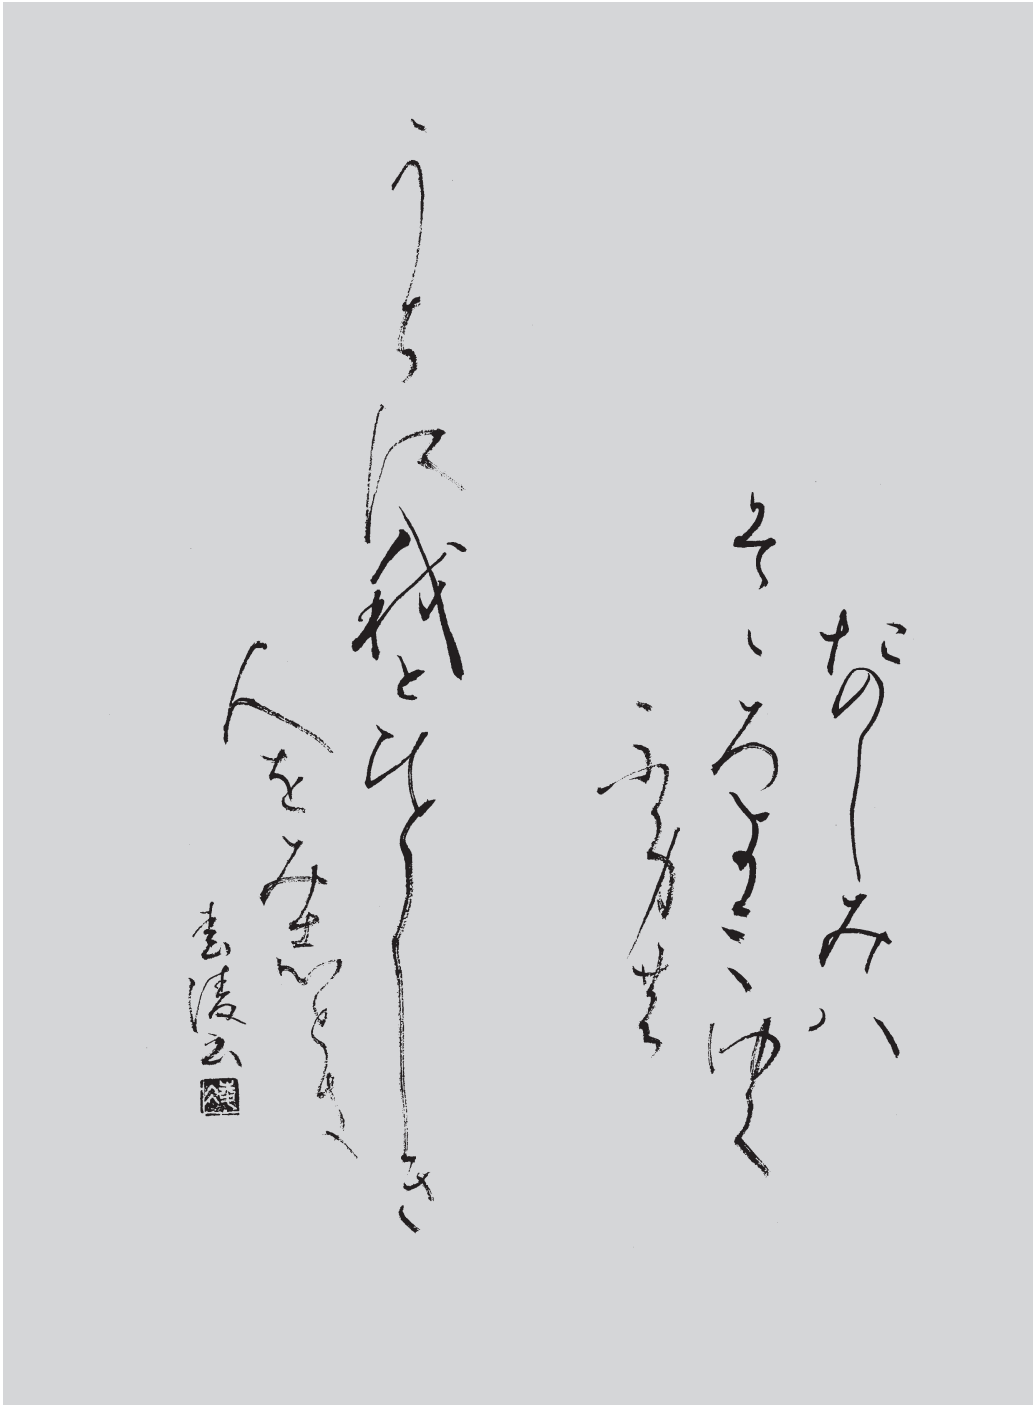 たのしみハ
そゝろよミゆく
ふ身の
うちに我とひとしき
人をみ志とき